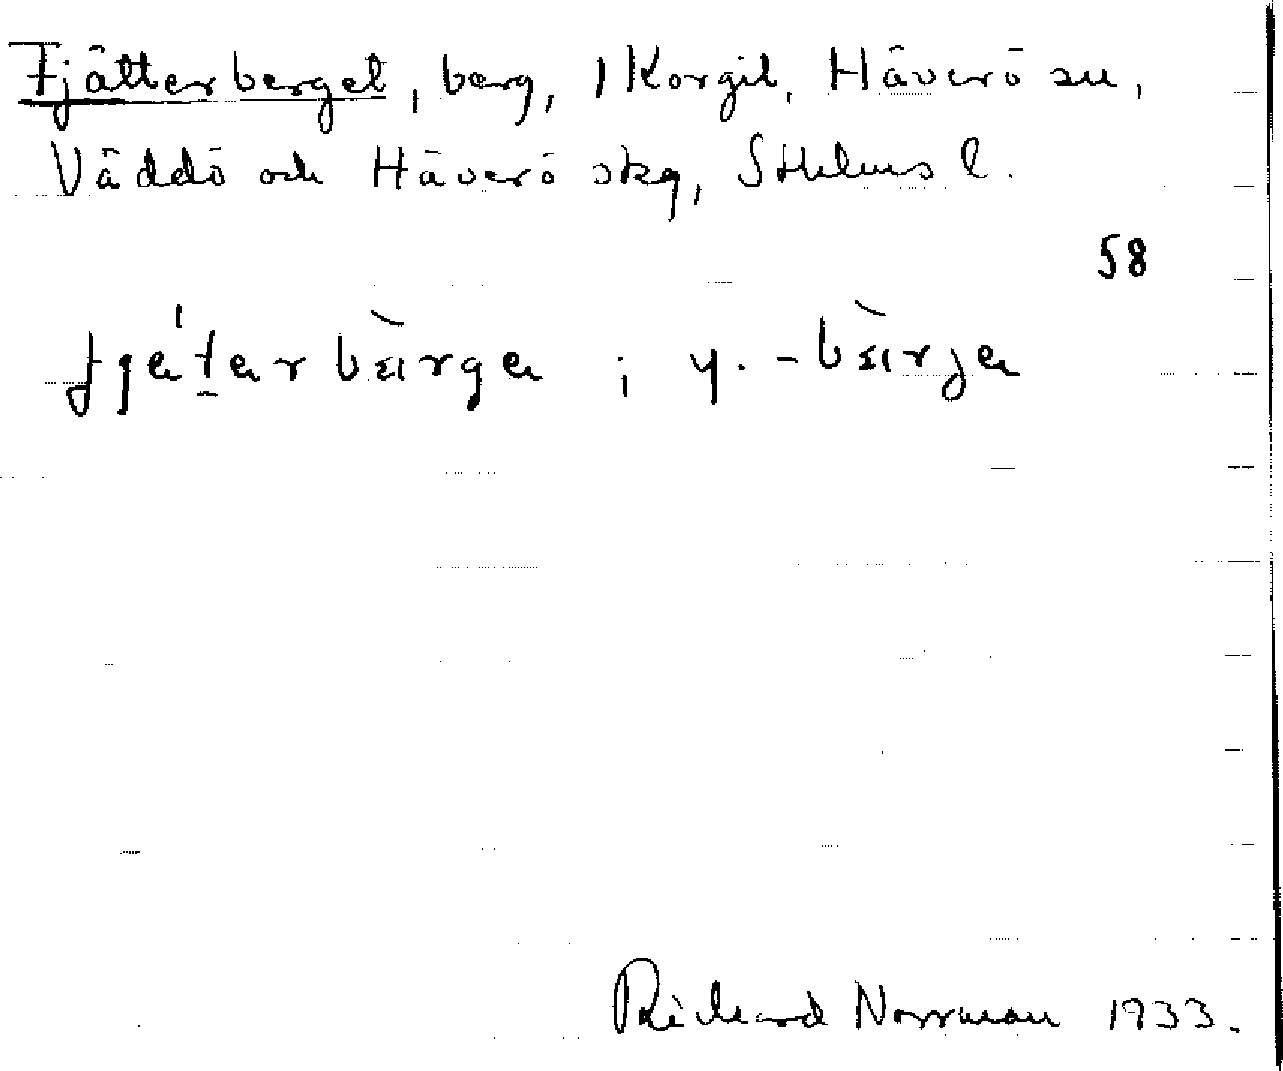 Fjätterberget, berg, 1 Korgil, Häverö sn,
Väddö och Häverö skg, Sthlms l.
58
; y. -
Richard Norrman 1933.